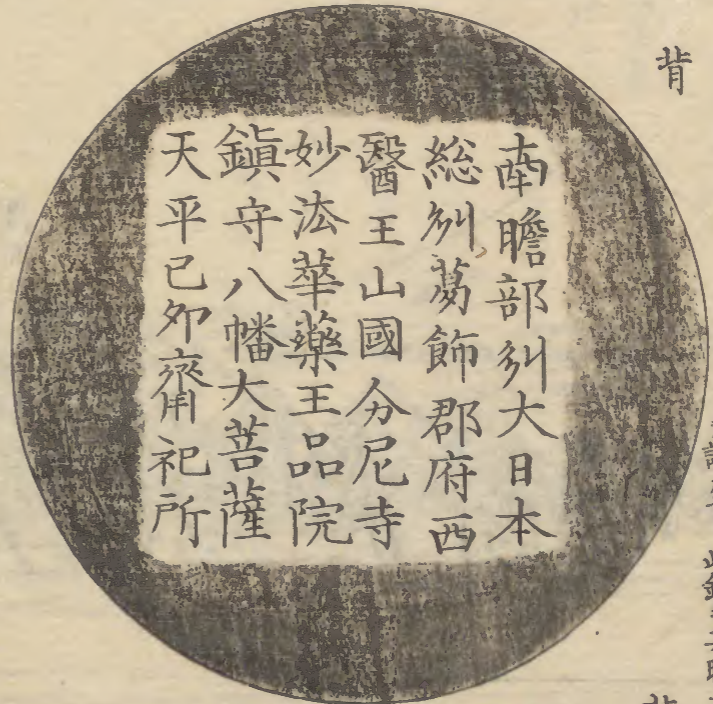 背
南瞻部州大日本
総州葛飾郡府西
醫王山國分尼寺
妙法華藥王品院
鎮守八幡大菩薩
天平己卯齋祀所
背